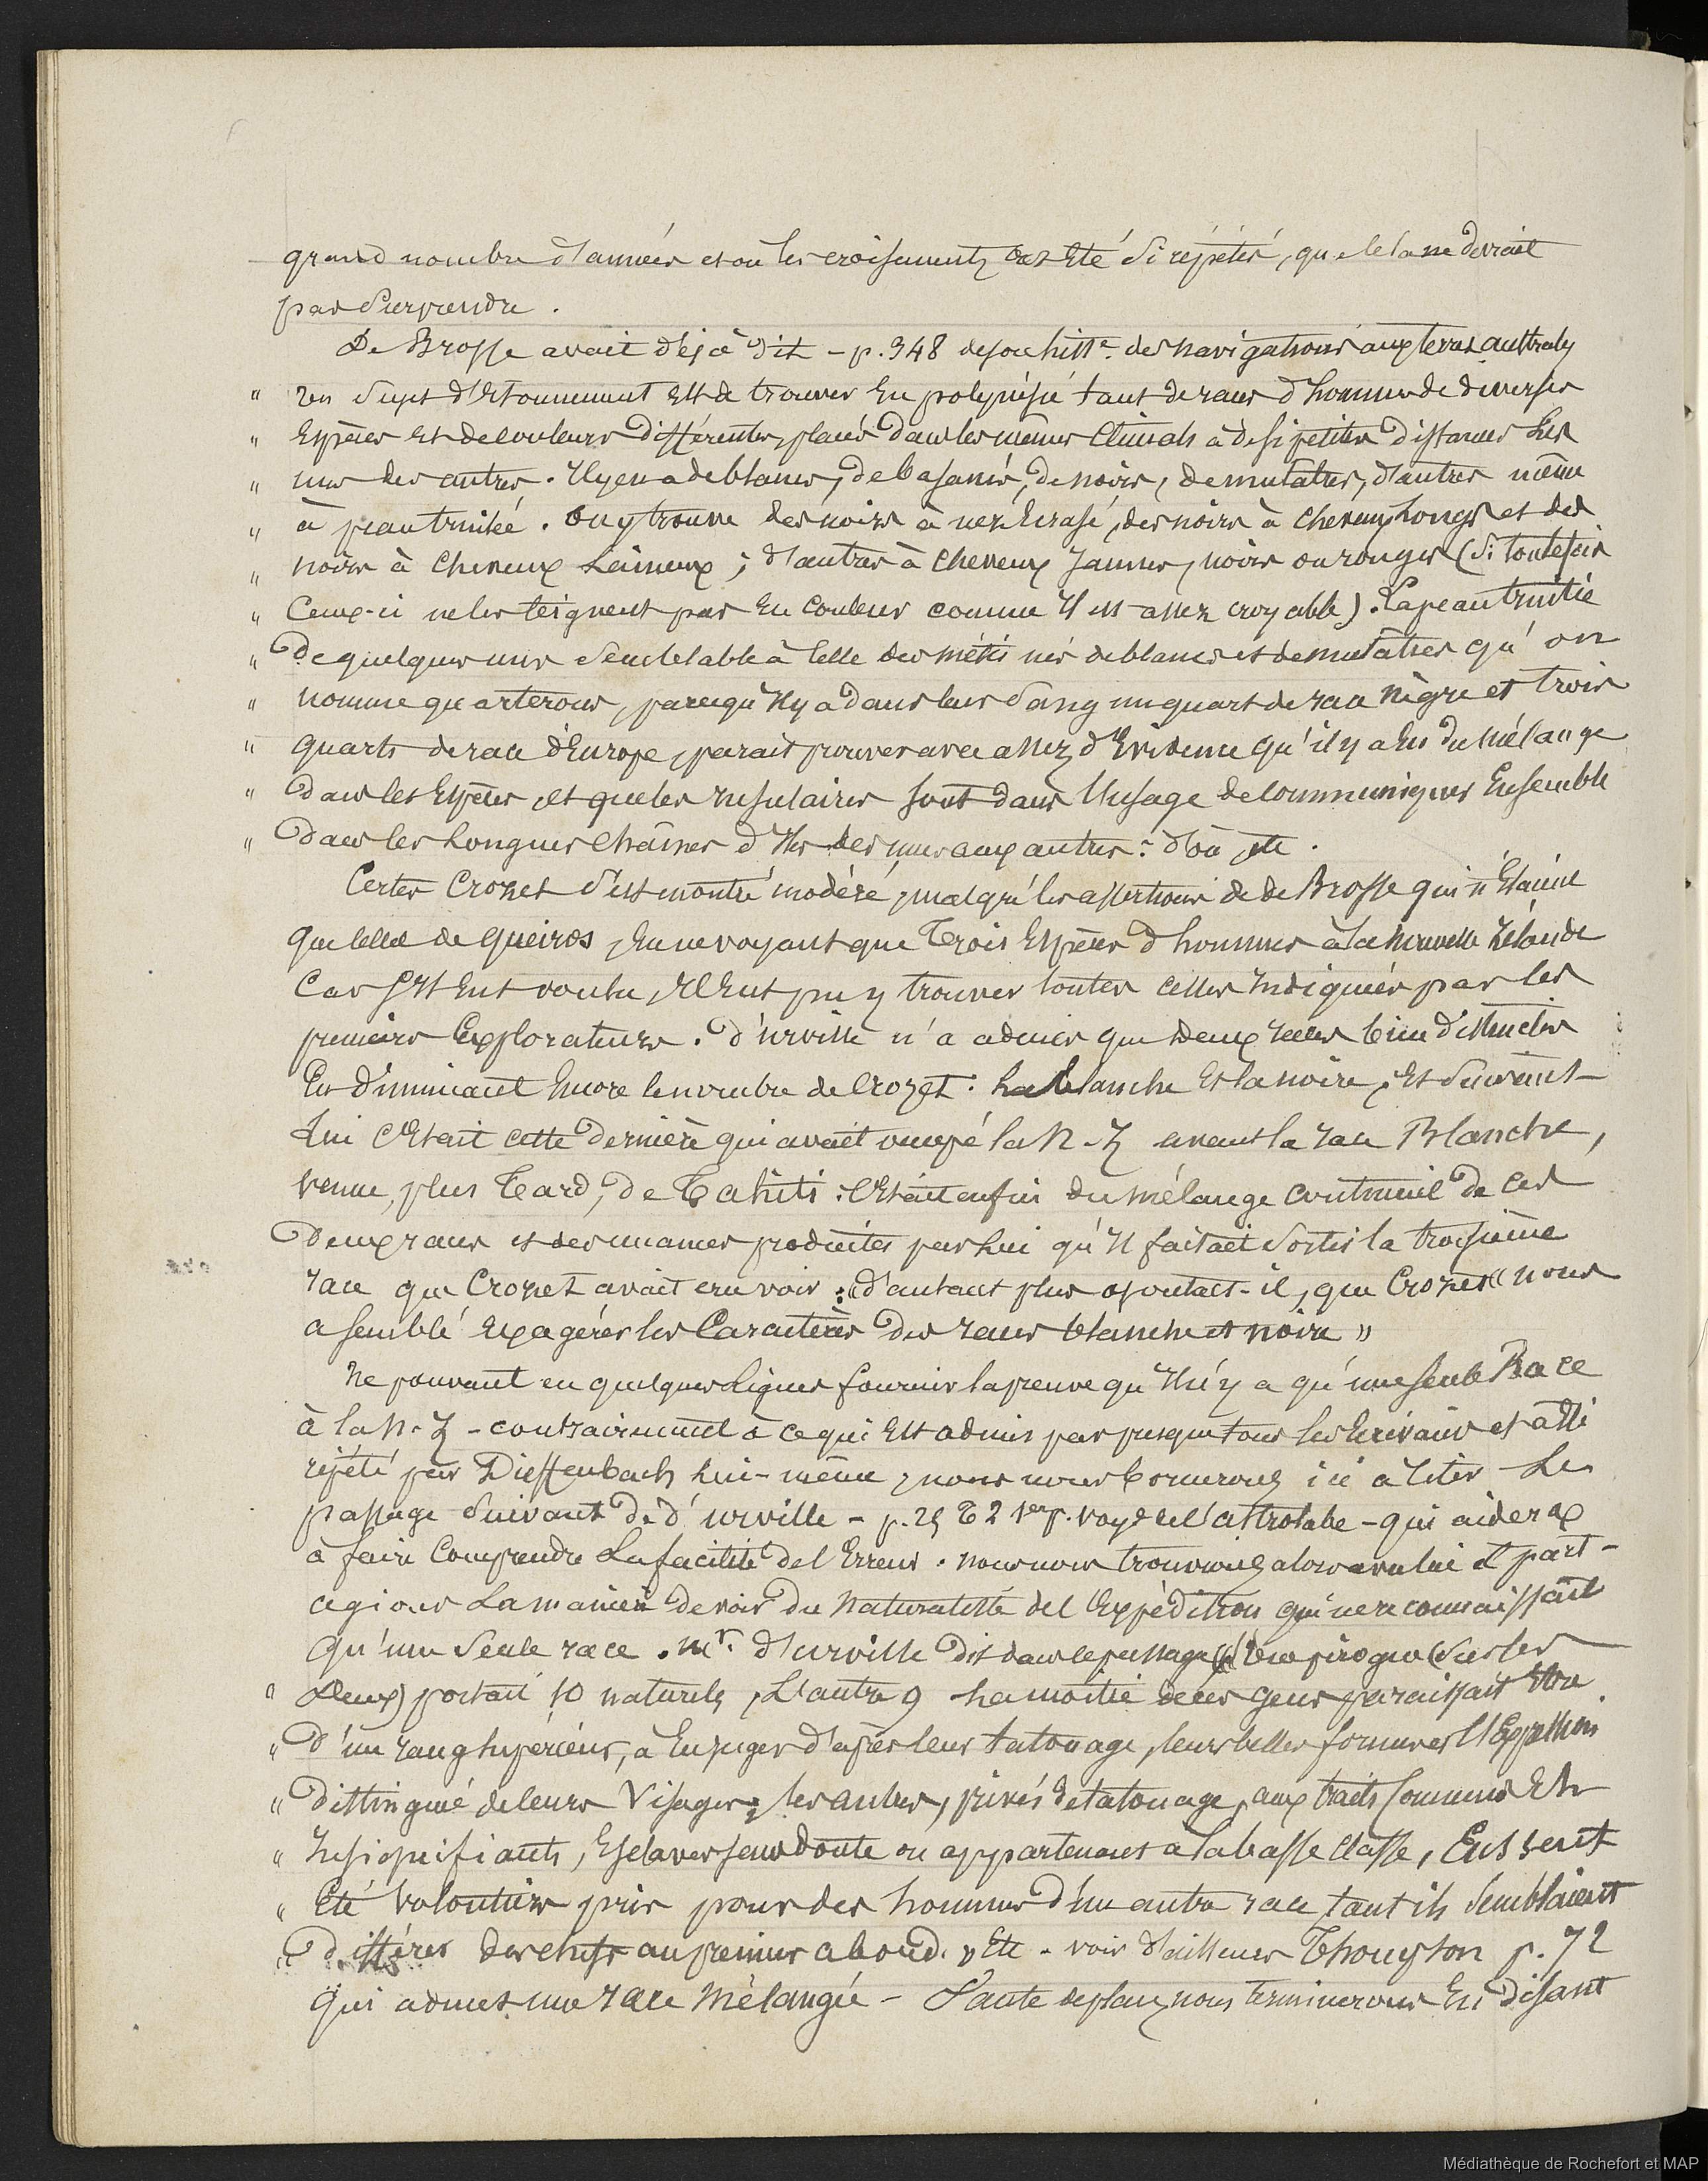 grand nombre d'années et où les croisements ont été si répétés, que cela ne devrait
pas surprendre.
De Brosse avait déjà dit - p. 348 de son histre. des navigations aux terres australes
" un sujet d'étonnement est de trouver en polynésie tant de races d'hommes de diverses
" espèces et de couleurs différentes, placés dans les mêmes climats à de si petites distances les
" uns des autres. Il y en a de blancs, de basanés, de noirs, de mulatres, d'autres même
" à peau truitée. On y trouve des noirs à nez écrasé, des noirs à cheveux longs et des
" noirs à cheveux laineux ; d'autres à cheveux jaunes, noirs ou rouges (si toutefois
" Ceux-ci ne les teignent pas en couleur comme il est assez croyable). La peau truitée
" De quelques uns semblable à celle des métis nés de blancs et de mulâtres qu'on
" nomme quarterons, parcequ'il y a dans leur sang un quart de race nègre et trois
" quarts de race d'Europe, parait prouver avec assez d'évidence qu'il y a eu du mélange
" Dans les espèces, et que les insulaires sont dans l'usage de communiquer ensemble
" Dans les longues chaînes d'iles des unes aux autres : d'où etc.
Certes Crozet s'est montré modéré, malgré les assertions de de Brosse qui n'étaient
que celles de Queiros, en ne voyant que trois espèces d'hommes à la nouvelle Zélande
Car s'il eut voulu, il eut pu y trouver toutes celles indiquées par les
premiers explorateurs. d'urville n'a admis que deux races bien distinctes
En diminuant encore le nombre de Crozet : la blanche et la noire, et suivant
Lui c'était cette dernière qui avait occupé la N-Z avant la race Blanche,
venue, plus tard, de Tahiti : c'était enfin du mélange continuel de ces
Deux races et des nuances produites par lui qu'il faisait sortir la troisième
race que Crozet avait cru voir : "d'autant plus ajoutait-il, que Crozet" nous
a semblé exagérer les Caractères des races blanche et noire "
Ne pouvant en quelques lignes fournir la preuve qu'il n'y a qu'une seule Race
à la N-Z - contrairement à ce qui est admis par presque tous les écrivains et a été
répété par Dieffenbach lui-même, nous nous bornerons ici à citer le
passage suivant de d'urville - p. 25 T 2 1er p. voyge de l'astrolabe - qui aidera
à faire comprendre la facilité de l'Erreur. nous nous trouvions alors avec lui et part-
agions la manière de voir du naturaliste de l'Expédition qui ne reconnaissait
qu'une seule race. Mr. d'urville dit dans le passage "Une pirogue (sur les
" Deux) portait 10 naturels, L'autre 9 la moitié de ces gens paraissait être
" D'un rang supérieur, à en juger d'après leur tatouage, leurs belles formes et l'Expression
" Distinguée de leurs visages ; les autres, privés de tatouage, aux traits communs et
" Insignifiants, Esclaves sans doute ou appartenant à la basse classe, Eussent
" Eté volontiers pris pour des hommes d'une autre race tant ils semblaient
" Différer des chefs au premier abord. " Etc - voir d'ailleurs Thompson p. 72
qui admet une race mélangée - Faute de place, nous terminerons en disant
Médiathèque de Rochefort et MAP